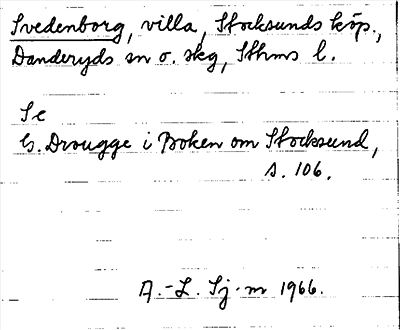 Svedenborg, villa, Stocksunds köp.,
Danderyds sn o. skg, Sthms l.
Se
G. Drougge i Boken om Stocksund,
s. 106.
A.-L. Sj-m 1966.